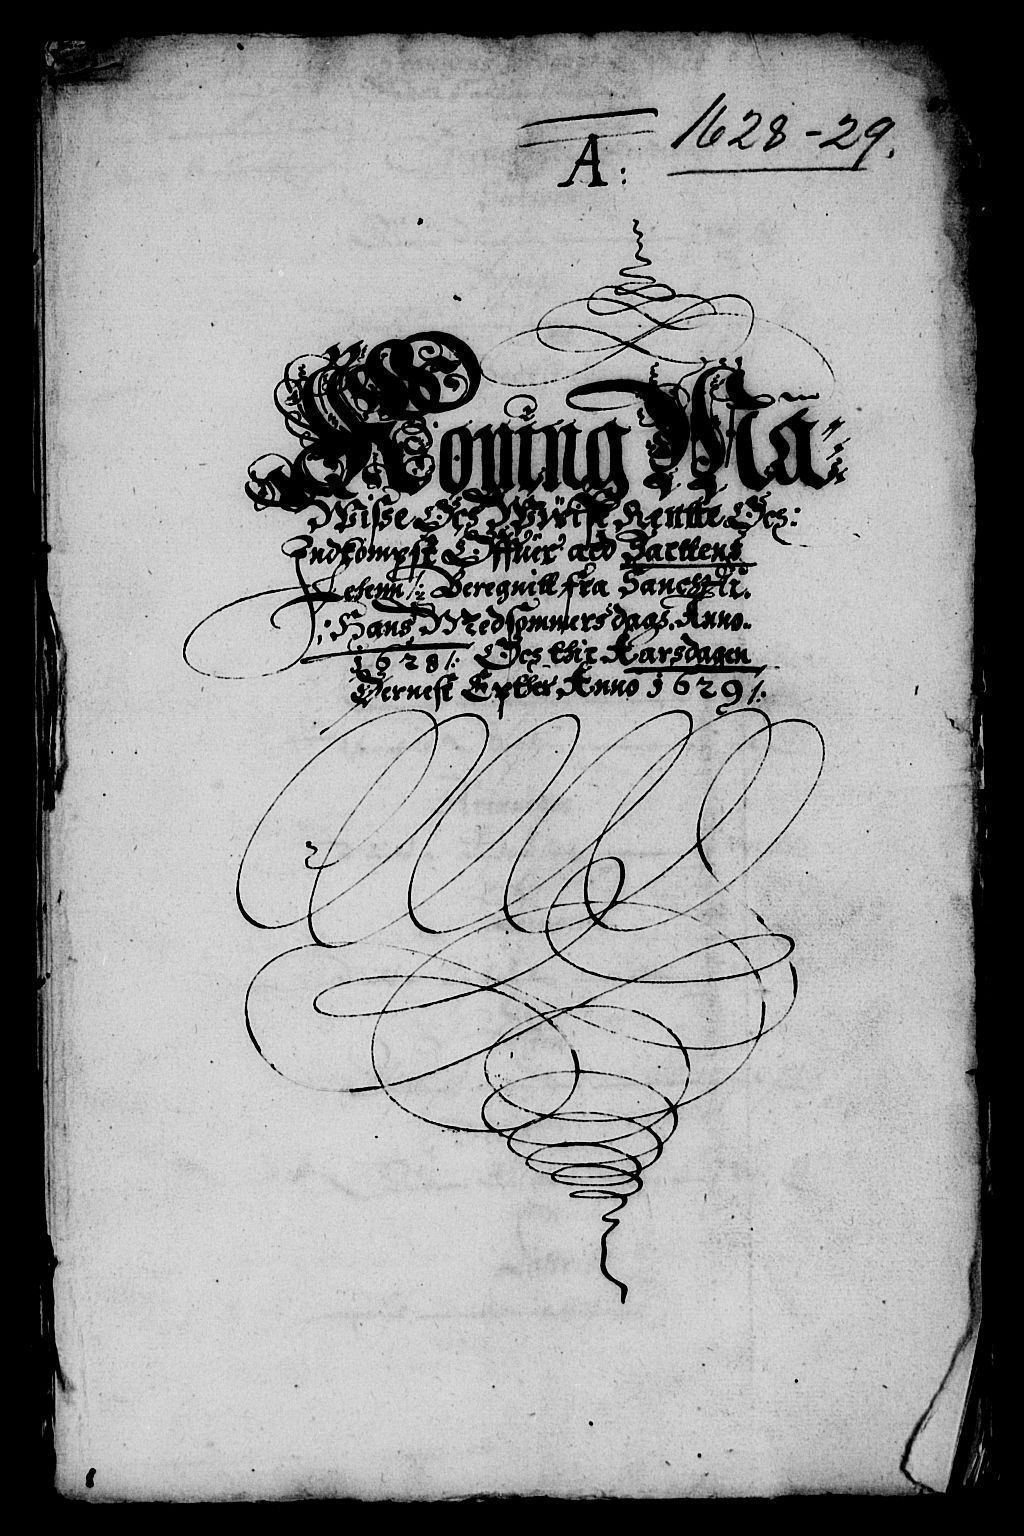 1628-29.
A:
Koning Ma:
Wisse Och Wviss Rentte Och:
Indkompst Offuer all Varttens
Lehenn /: Beregnitt fra Sanctti.
/: Hans Medsommersdags. Anno.
1628 /: Och thil Aarsdagen
Dernest Epther Anno 1629 /: